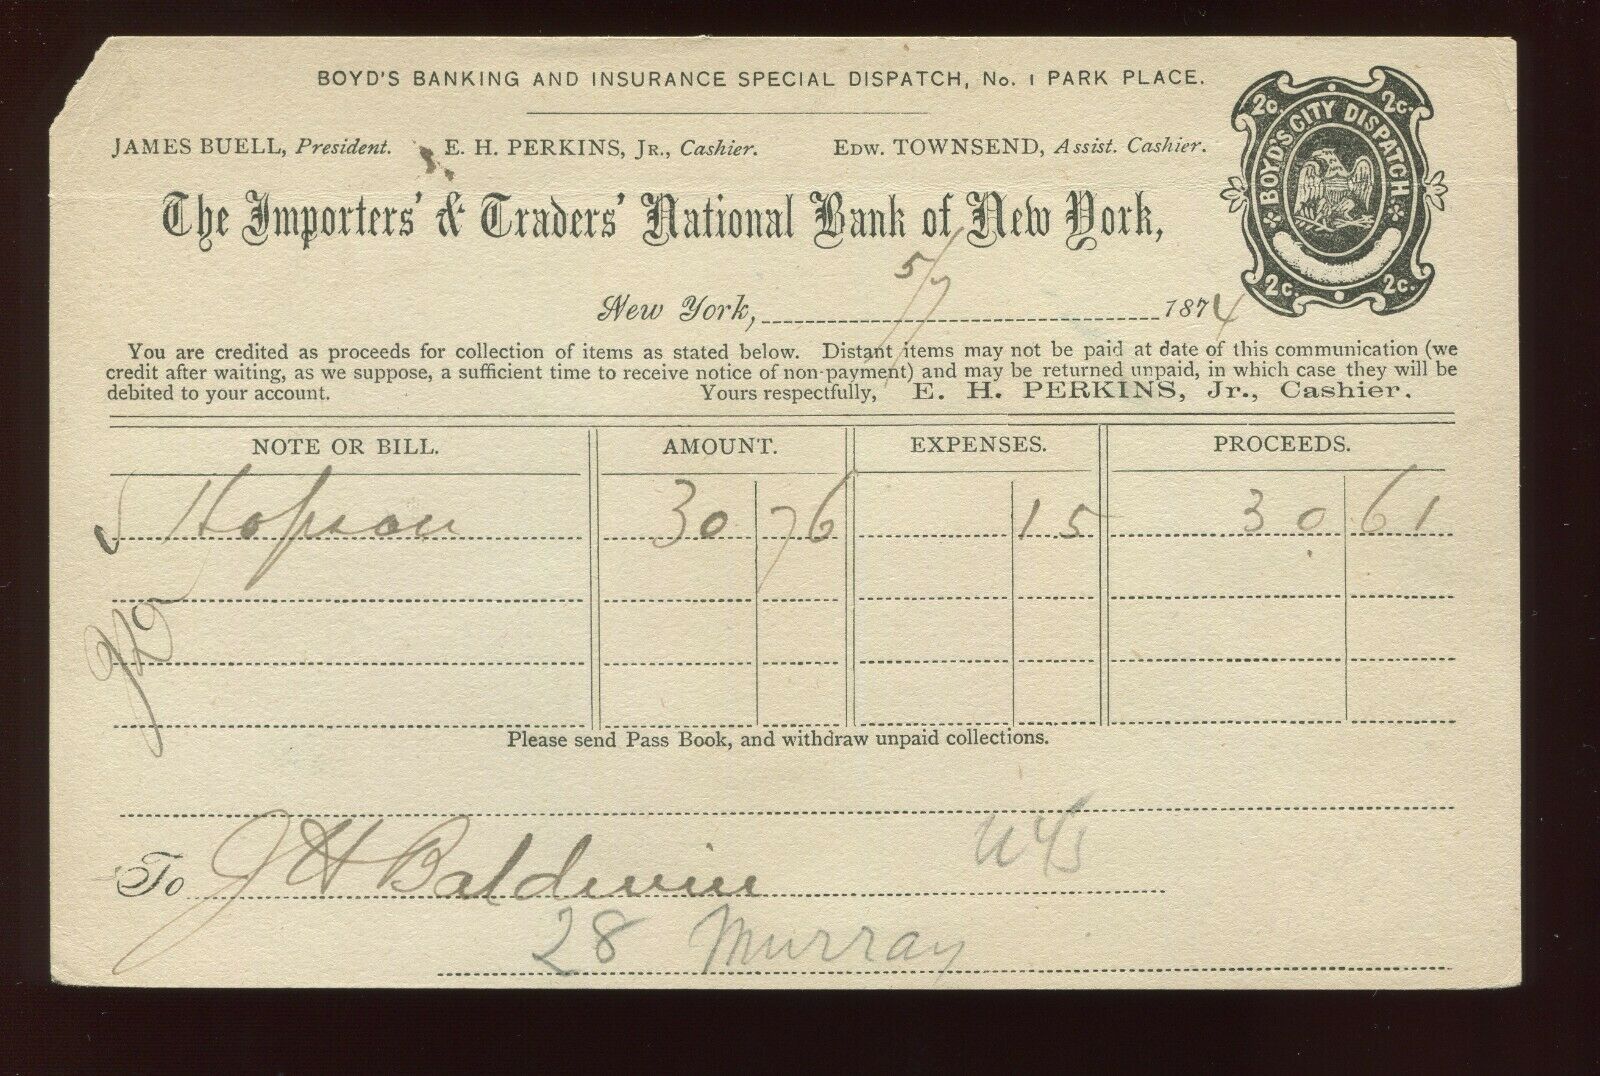 BOYD'S BANKING AND INSURANCE SPECIAL DISPATCH, No. 1 PARK PLACE.
2c. 2c.
BOYD'S CITY DISPATCH
2c. 2c.
JAMES BUELL, President. E. H. PERKINS, Jr., Cashier. Edw. TOWNSEND, Assist. Cashier.
The Importers' & Traders' National Bank of New York,
New York, 5/7 1874
You are credited as proceeds for collection of items as stated below. Distant items may not be paid at date of this communication (we
credit after waiting, as we suppose, a sufficient time to receive notice of non-payment) and may be returned unpaid, in which case they will be
debited to your account. Yours respectfully, E. H. PERKINS, Jr., Cashier.
NOTE OR BILL. AMOUNT. EXPENSES. PROCEEDS.
Hopson 30 76 15 30 61
Please send Pass Book, and withdraw unpaid collections.
To J H Baldwin
28 Murray